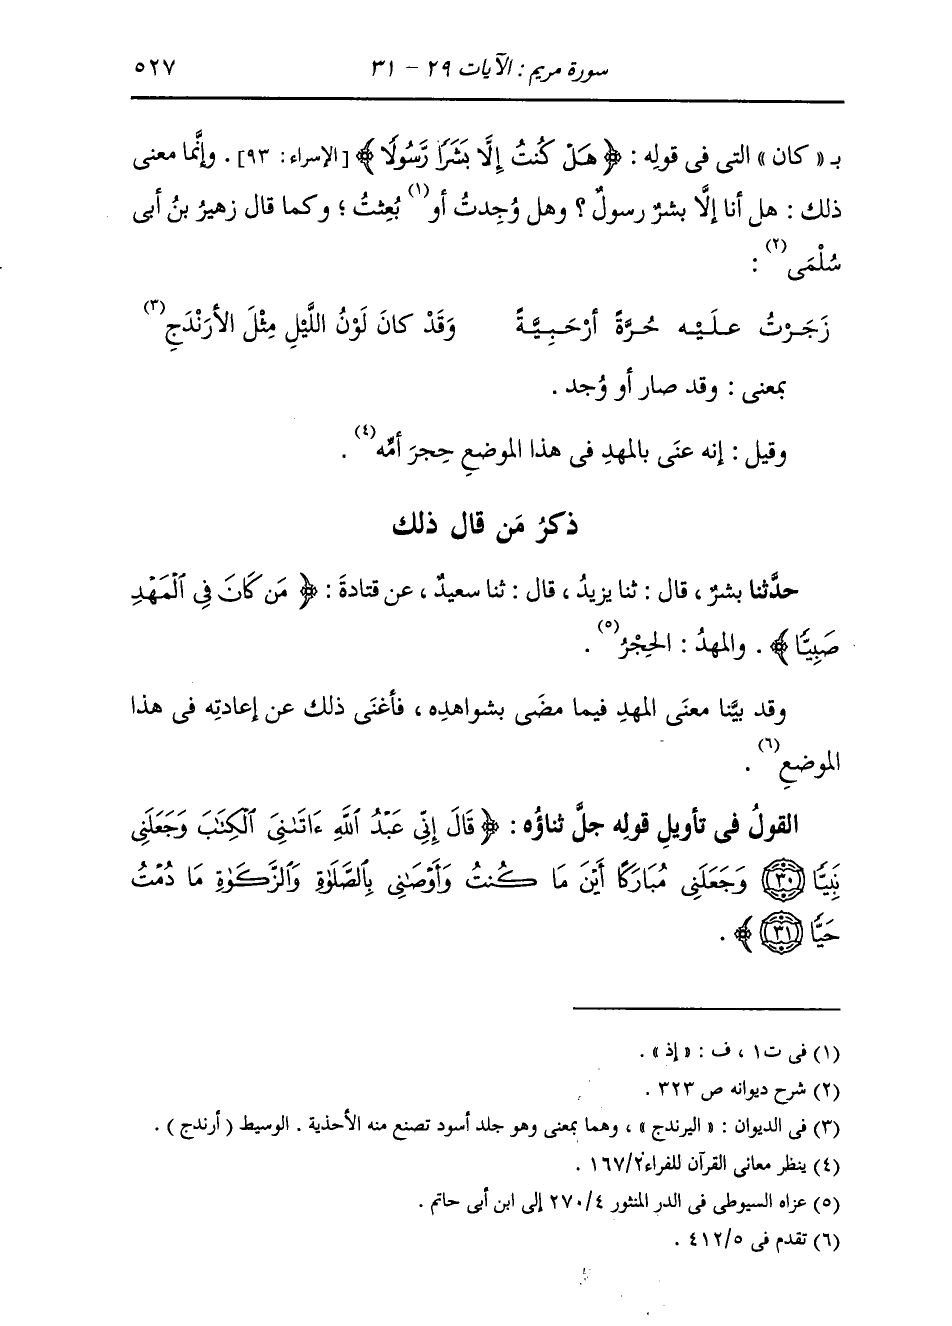 سورة مريم : الآيات ٢٩ - ٣١ ٥٢٧
بـ « كان » التى فى قولِه : ﴿ هَلْ كُنتُ إِلَّا بَشَرًا رَّسُولًا ﴾ [الإسراء: ٩٣] . وإنَّما معنى
ذلك : هل أنا إلَّا بشرٌ رسولٌ ؟ وهل وُجدتُ أو(١) بُعِثتُ ؛ وكما قال زهيرُ بنُ أبى
سُلْمَى(٢) :
زَجَرْتُ عَلَيْه حُرَّةً أرْحَبِيَّةً وَقَدْ كانَ لَوْنُ اللَّيْلِ مِثْلَ الأرَنْدَجِ(٣)
بمعنى : وقد صار أو وُجد .
وقيل : إنه عنَى بالمهدِ فى هذا الموضعِ حِجرَ أمِّه(٤) .
ذكرُ مَن قال ذلك
حدَّثنا بشرٌ ، قال : ثنا يزيدُ ، قال : ثنا سعيدٌ ، عن قتادةَ : ﴿ مَن كَانَ فِي ٱلْمَهْدِ
صَبِيًّا ﴾ . والمهدُ : الحِجْرُ(٥) .
وقد بيَّنا معنَى المهدِ فيما مضَى بشواهدِه ، فأغنَى ذلك عن إعادتِه فى هذا
الموضعِ(٦) .
القولُ فى تأويلِ قولِه جلَّ ثناؤُه : ﴿ قَالَ إِنِّي عَبْدُ ٱللَّهِ ءَاتَىٰنِيَ ٱلْكِتَٰبَ وَجَعَلَنِي
نَبِيًّا ٣٠ وَجَعَلَنِي مُبَارَكًا أَيْنَ مَا كُنتُ وَأَوْصَٰنِي بِٱلصَّلَوٰةِ وَٱلزَّكَوٰةِ مَا دُمْتُ
حَيًّا ٣١ ﴾ .
(١) فى ت١ ، ف : « إذ » .
(٢) شرح ديوانه ص ٣٢٣ .
(٣) فى الديوان : « اليرندج » ، وهما بمعنى وهو جلد أسود تصنع منه الأحذية . الوسيط ( أرندج ) .
(٤) ينظر معانى القرآن للفراء ١٦٧/٢ .
(٥) عزاه السيوطى فى الدر المنثور ٢٧٠/٤ إلى ابن أبى حاتم .
(٦) تقدم فى ٤١٢/٥ .